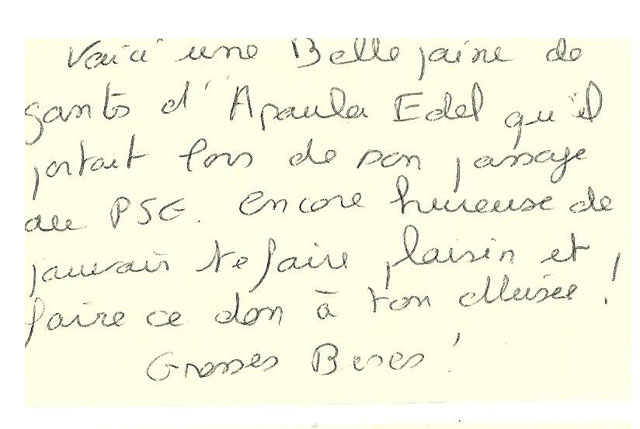 Voici une Belle paire de
gants d'Apoula Edel qu'il
portait lors de son passage
au PSG. Encore hureuse de
pouvoir te faire plaisir et
faire ce don à ton Musée !
Grosses Bises !